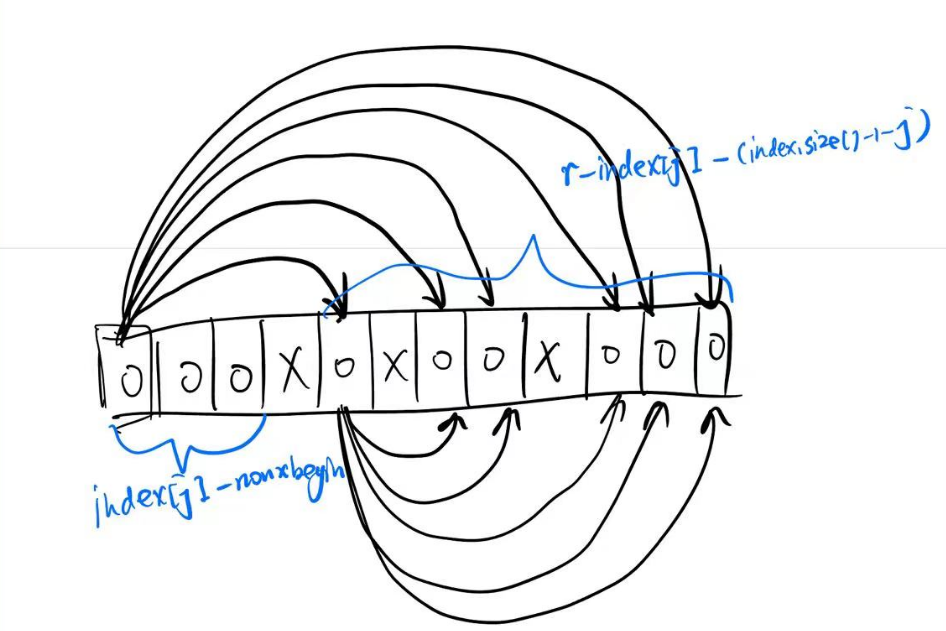 r-index[j]-(index.size()-1-j)
0 0 0 X 0 X 0 0 X 0 0 0
index[j]-nonxbegin